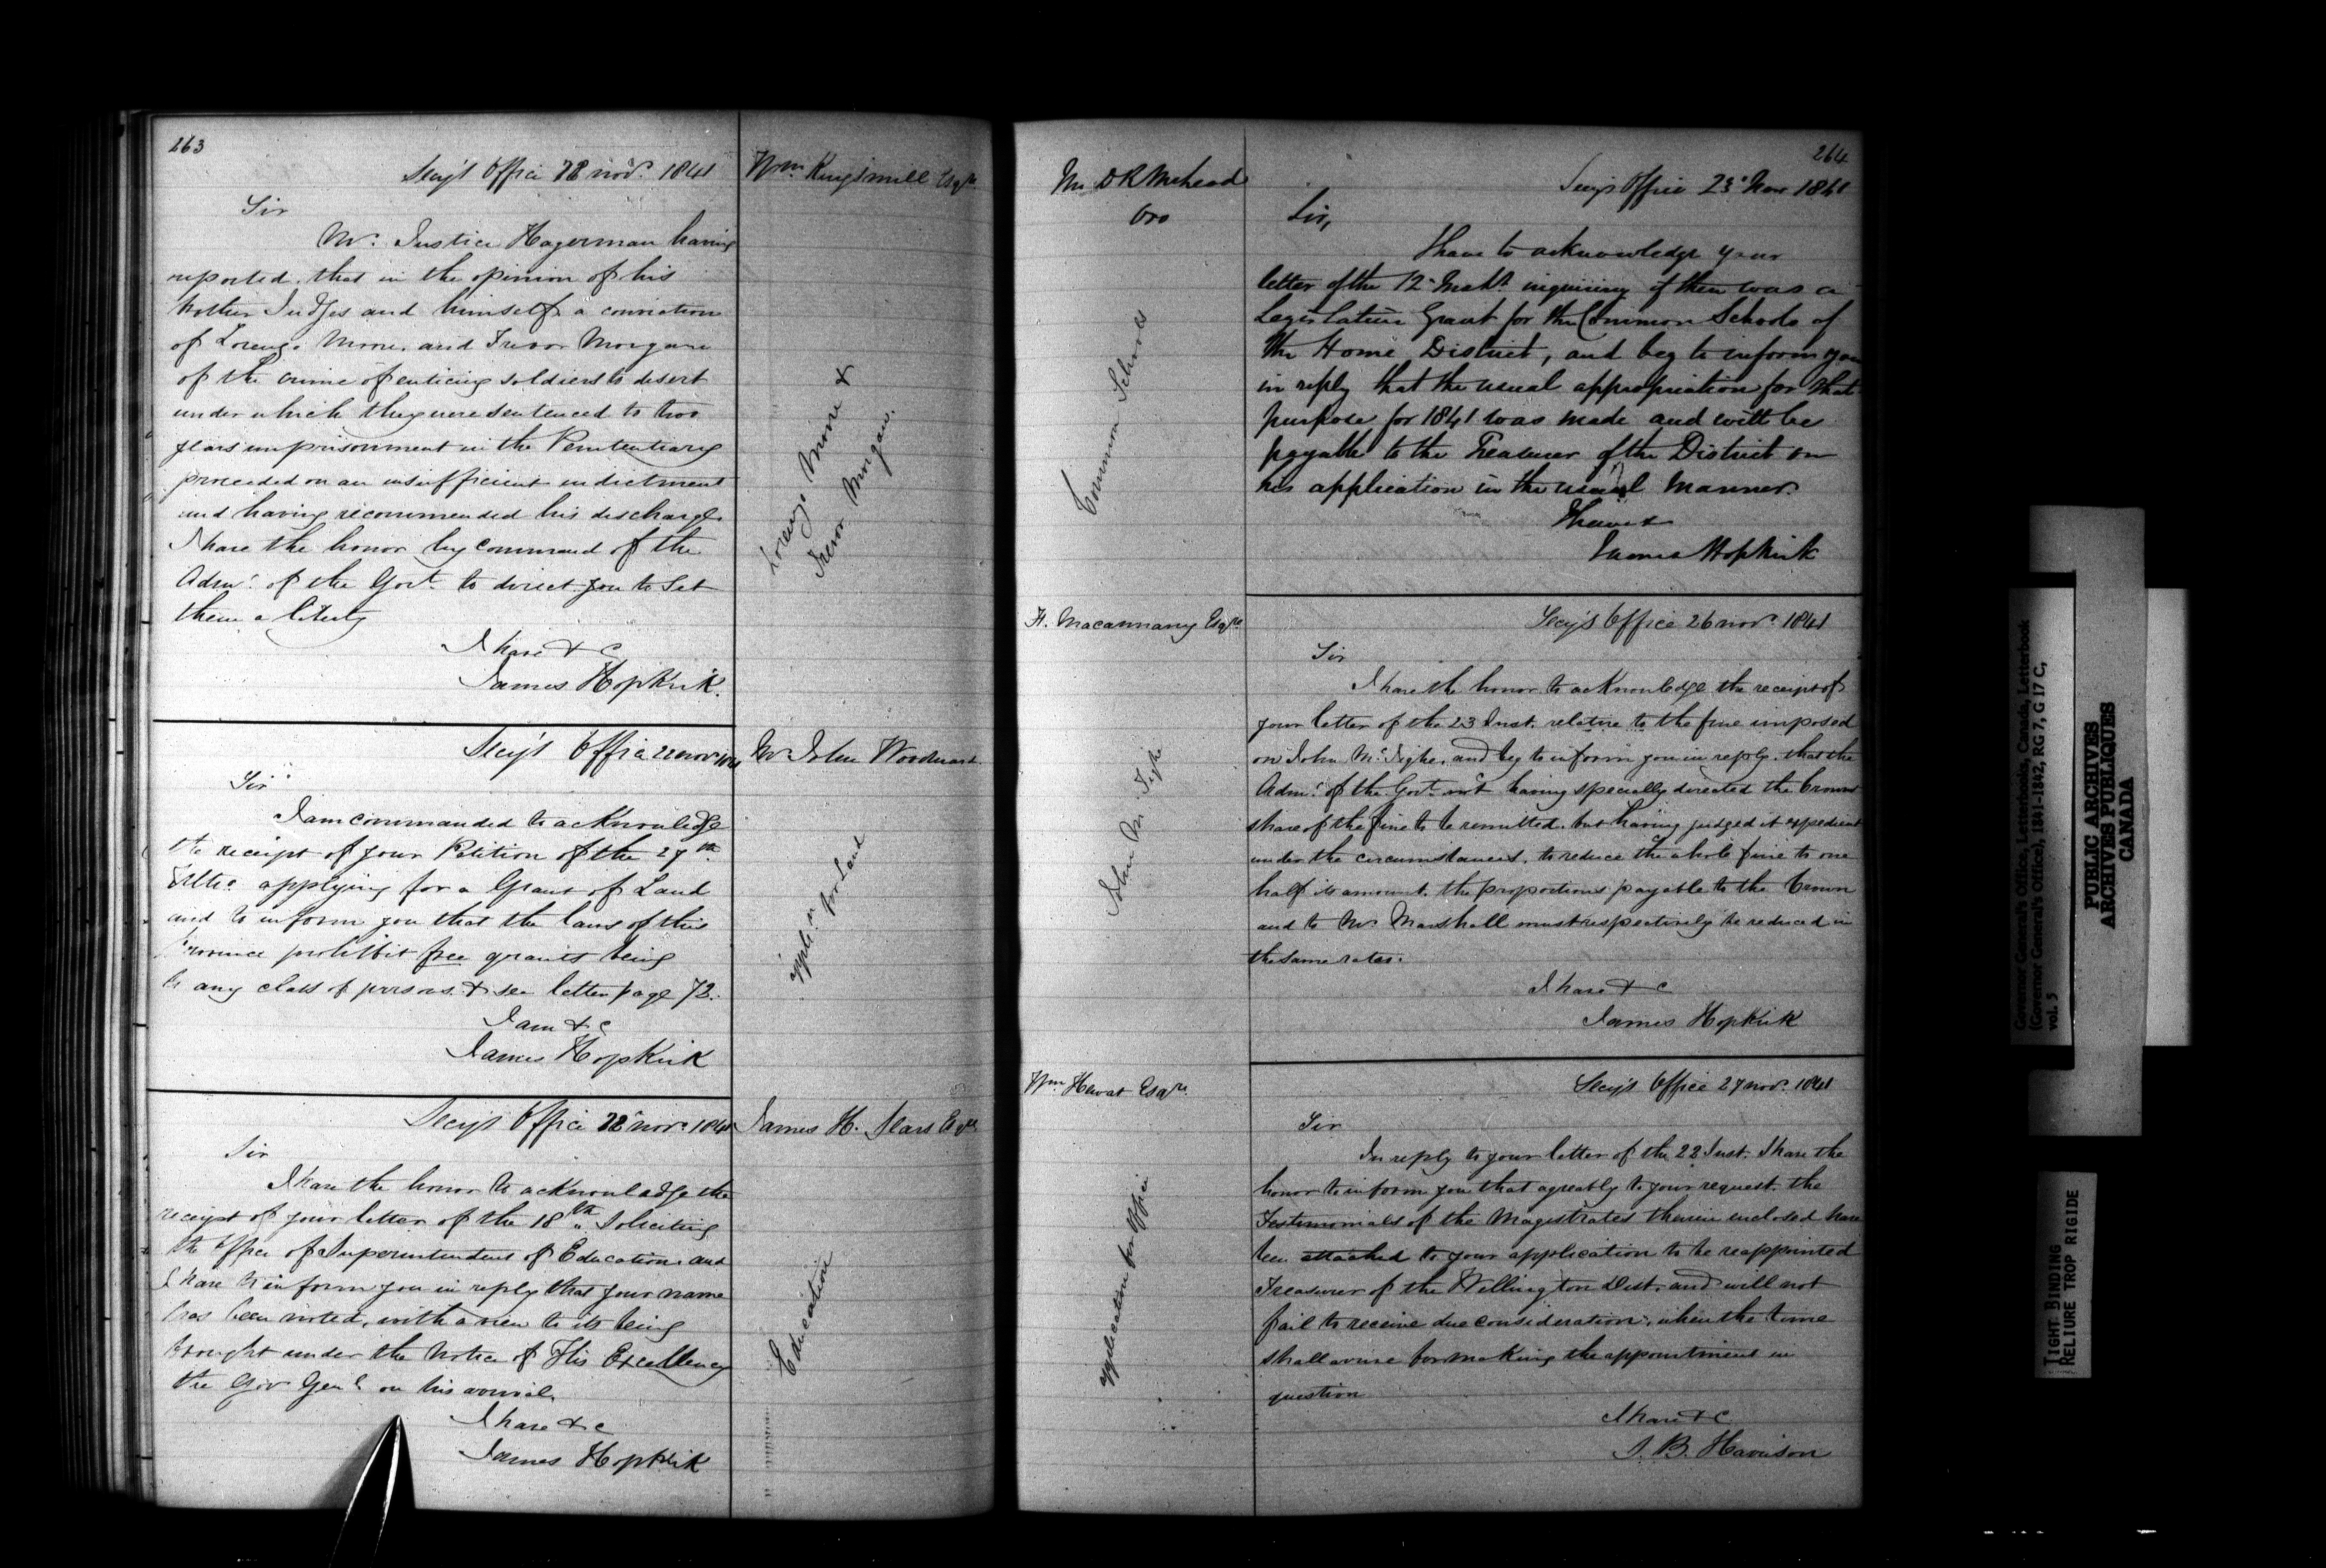 263
Secy's Office 22 novr. 1841
Wm Kingsmill Esqre
Sir
Mr. Justice Hagerman having
reported, that in the opinion of his
brother Judges and himself, a conviction
of Lorenzo Moore, and Trevor Morgan
of the crime of enticing soldiers to desert
under which they were sentenced to two
years imprisonment in the Penitentiary
proceeded on an insufficient indictment
and having recommended his discharge
I have the honor by command of the
Admr. of the Govt. to direct you to set
them a liberty
I have & c
James Hopkirk.
Lorenzo Moore &
Trevor Morgan.
Secy's Office 22 novr 1841
Mr John Woodward
Sir
I am commanded to acknowledge
the receipt of your Petition of the 27th
Ulto. applying for a Grant of Land
and to inform you that the laws of this
Province prohibit free grants being
to any class of persons. & see letter page 72.
I am & c
James Hopkirk
appln. for Land
Secy's Office 22 novr. 1841
James H. Sears Esqre
Sir
I have the honor to acknowledge the
receipt of your letter of the 18th " soliciting
the office of Superintendent of Education and
I have to inform you in reply that your name
has been noted, with a view to its being
brought under the notice of His Excellency
the Gov Genl on his arrival.
I have & c
James Hopkirk
Education
264
Mr D R
Oro
Secy's Office 23d Nov 1841
Sir,
I have to acknowledge your
letter of the 12th Inst. inquiring if there was a
Legislative Grant for the Common Schools of
the Home District, and beg to inform you
in reply that the usual appropriation for that
purpose for 1841 was made and will be
payable to the Treasurer of the District on
his application in the usual manner.
I have &
James Hopkirk
Common Schools
Secy's Office 26 novr. 1841
Sir
I have the honor to acknowledge the receipt of
your letter of the 23 Inst. relative to the fine imposed
on John McTighe, and beg to inform you in reply, that the
Admr. of the Govt. not having specially directed the Crown
share of the fine to be remitted, but having judged it expedient
under the circumstances, to reduce the whole fine to one
half its amount, the proportions payable to the Crown
and to Mr. Marshall must respectively be reduced in
the same rates.
I have & c
James Hopkirk
John McTighe
Secy's Office 27 novr. 1841
Sir
In reply to your letter of the 22 Inst. I have the
honor to inform you that agreably to your request, the
Testimonials of the Magistrates therein enclosed have
been attached to your application to be reappointed
Treasurer of the Wellington Dist. and will not
fail to receive due consideration, when the time
shall arrive for making the appointment in
question
I have & c
S. B. Harrison
application for Office
Governor General's Office, Letterbooks, Canada, Letterbook
(Governor General's Office), 1841-1842, RG 7, G 17 C,
vol. 5
PUBLIC ARCHIVES
ARCHIVES PUBLIQUES
CANADA
TIGHT BINDING
RELIURE TROP RIGIDE